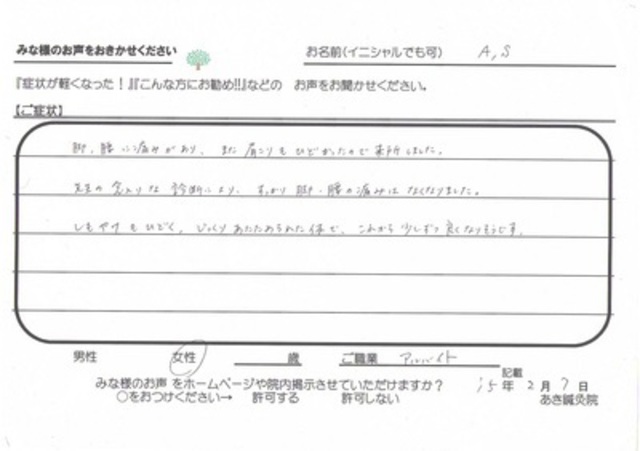 みな様のお声をおきかせください
お名前(イニシャルでも可) A,S
『症状が軽くなった!』『こんな方にお勧め!!』などの お声をお聞かせください。
【ご症状】
脚・腰に痛みがあり、また肩こりもひどかったので来所しました。
先生の念入りな診断により、すっかり脚・腰の痛みはなくなりました。
しもやけもひどく、じっくりあたためられた体で、これから少しずつ良くなりそうです。
男性 女性 歳 ご職業 アルバイト
記載
みな様のお声 をホームページや院内掲示させていただけますか? 15年 2月 7日
○をおつけください→ 許可する 許可しない あき鍼灸院